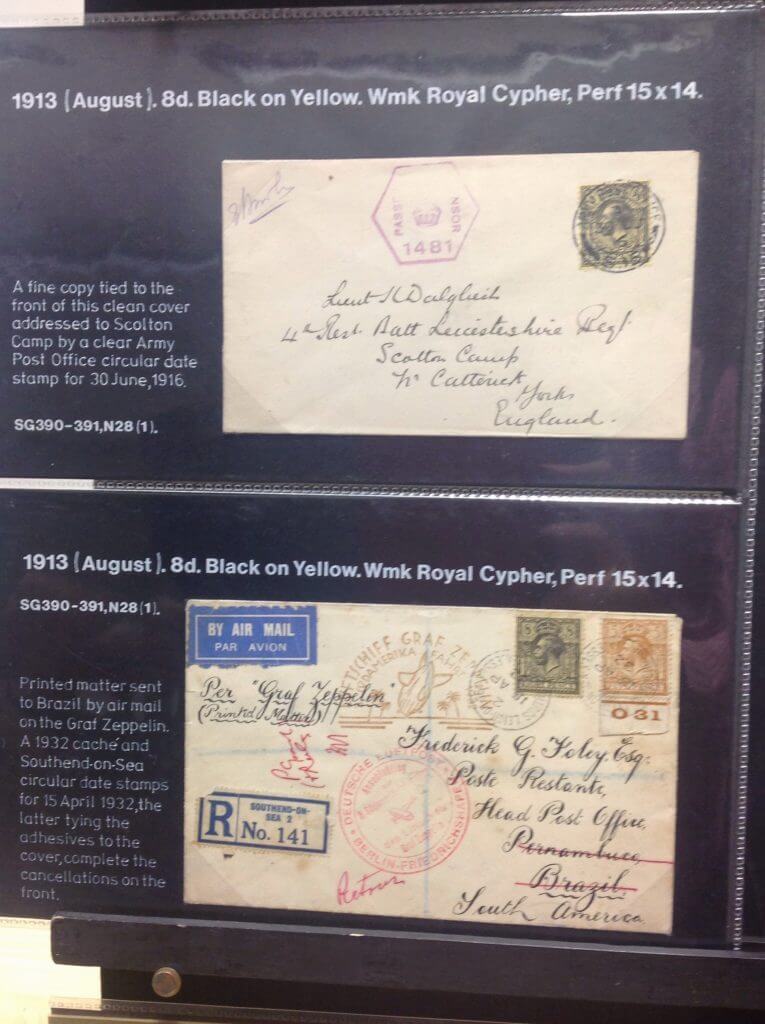 1913 (August). 8d. Black on Yellow. Wmk Royal Cypher, Perf 15x14.
PASSE NSOR
1481
A fine copy tied to the
front of this clean cover
addressed to Scolton
Camp by a clear Army
Post Office circular date
stamp for 30 June, 1916.
SG390-391, N28 (1).
Lieut Dalgliesh
4th Rest Batt Leicestershire Regt
Scotton Camp
Nr Catterick
Yorks
England.
1913 (August). 8d. Black on Yellow. Wmk Royal Cypher, Perf 15x14.
SG390-391, N28 (1).
Printed matter sent
to Brazil by air mail
on the Graf Zeppelin.
A 1932 caché and
Southend-on-Sea
circular date stamps
for 15 April 1932, the
latter tying the
adhesives to the
cover, complete the
cancellations on the
front.
BY AIR MAIL
PAR AVION
LUFTSCHIFF GRAF ZE
SÜDAMERIKA FAHRT
Per "Graf Zeppelin"
(Printed Matter)
O 31
Frederick G. Foley, Esq.
Poste Restante,
Head Post Office,
Pernambuco,
Brazil.
South America.
DEUTSCHE LUFTPOST
BERLIN-FRIEDRICHSHAFEN
R
SOUTHEND-ON-
SEA 2
No. 141
Retour